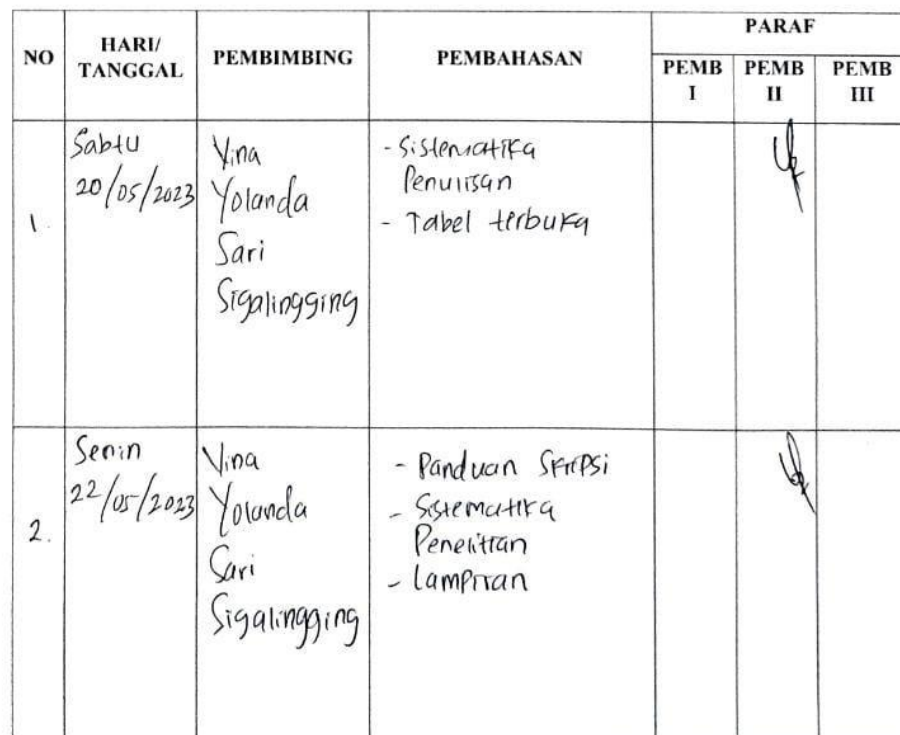 NO
HARI/
TANGGAL
PEMBIMBING
PEMBAHASAN
PARAF
PEMB
I
PEMB
II
PEMB
III
1.
Sabtu
20/05/2023
Vina
Yolanda
Sari
Sigalingging
- Sistematika
Penulisan
- Tabel terbuka
2.
Senin
22/05/2023
Vina
Yolanda
Sari
Sigalingging
- Panduan Skripsi
- Sistematika
Penelitian
- Lampiran